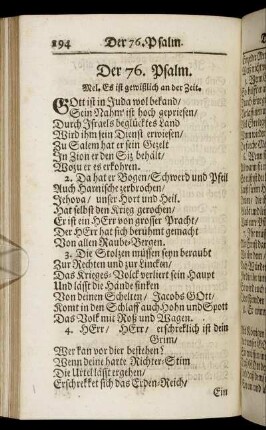 194 Der 76. Psalm.
Der 76. Psalm.
Mel. Es ist gewißlich an der Zeit.
GOtt ist in Juda wol bekand/
Sein Nahm' ist hoch gepriesen/
Durch Israels beglücktes Land
Wird ihm sein Dienst erwiesen/
Zu Salem hat er sein Gezelt
In Zion er den Siz behält/
Wozu er es erkohren.
2. Da hat er Bogen/Schwerd und Pfeil
Auch Harnische zerbrochen/
Jehova/ unser Hort und Heil.
Hat selbst den Krieg gerochen/
Er ist ein HErr von grosser Pracht/
Der HErr hat sich berühmt gemacht
Von allen Raube-Bergen.
3. Die Stolzen müssen seyn beraubt
Zur Rechten und zur Lincken/
Das Krieges-Volck verliert sein Haupt
Und lässt die Hände sinken
Von deinen Schelten/ Jacobs GOtt/
Komt in den Schlaff auch Hohn und Spott
Das Volk mit Roß und Wagen.
4. HErr/ HErr/ erschreklich ist dein
Grim/
Wer kan vor dir bestehen?
Wenn deine harte Richter-Stim
Die Urtel lässt ergehen/
Erschrekket sich das Erden-Reich/
Ein